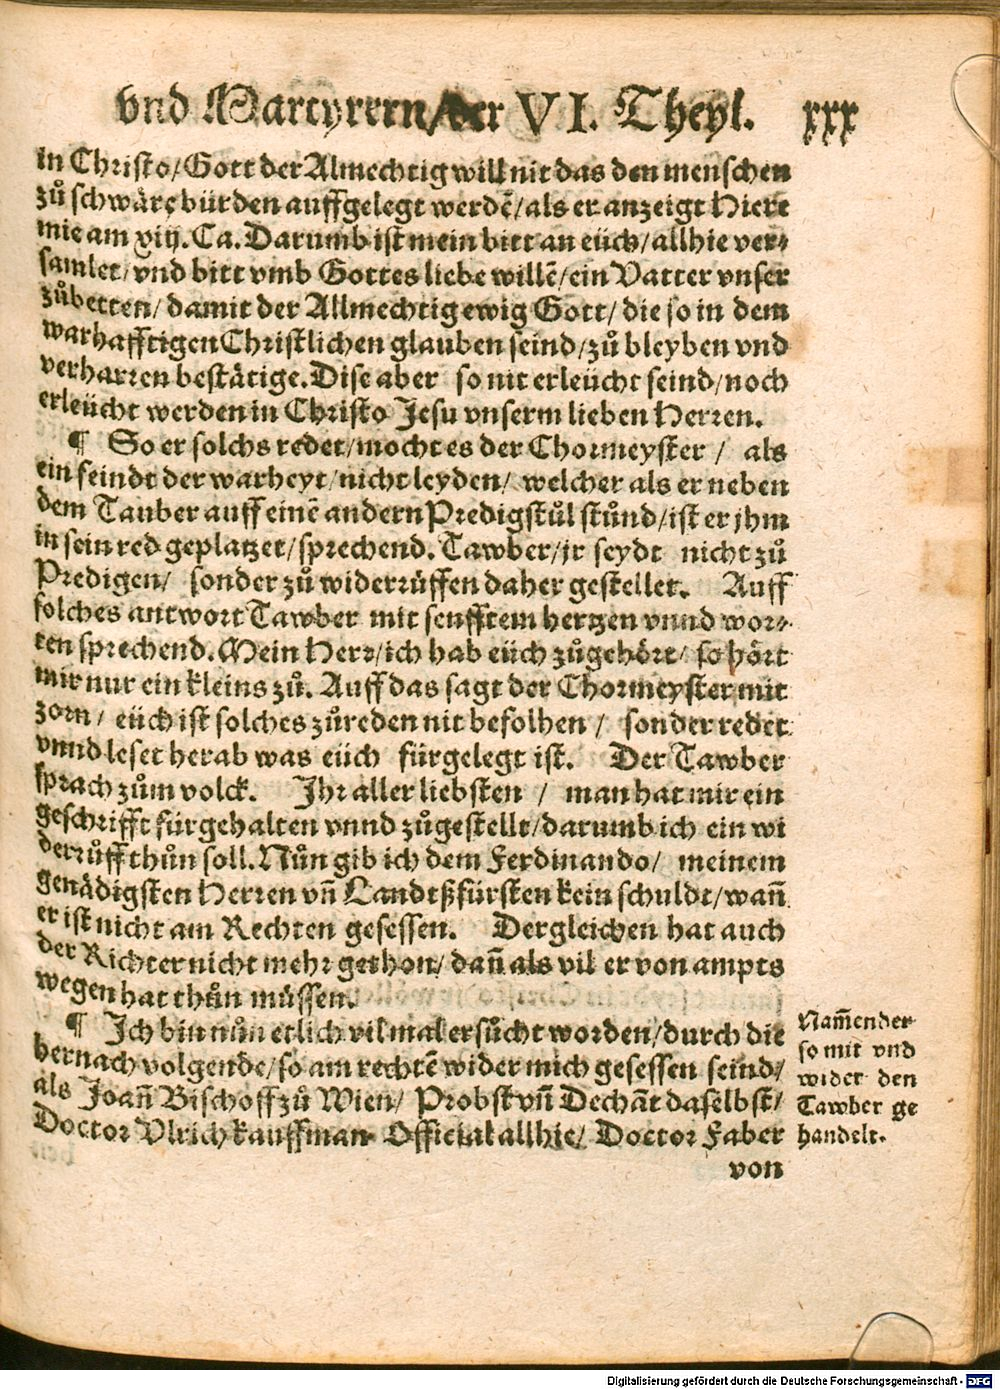 vnd Martyrern/der VI. Theyl. xxx
in Christo/Gott der Almechtig will nit das den menschen
zů schwäre bürden auffgelegt werdē/als er anzeigt Hiere
mie am xiij. Ca. Darumb ist mein bitt an eüch/allhie ver⸗
samlet/vnd bitt vmb Gottes liebe willē/ein Vatter vnser
zůbetten/damit der Allmechtig ewig Gott/die so in dem
warhafftigen Christlichen glauben seind/zů bleyben vnd
verharren bestätige. Dise aber so nit erleücht seind/noch
erleücht werden in Christo Jesu vnserm lieben Herren.
¶ So er solchs redet/mocht es der Chormeyster / als
ein feindt der warheyt/nicht leyden/ welcher als er neben
dem Tauber auff einē andern Predigstůl stůnd/ist er jhm
in sein red geplatzet/sprechend. Tawber/jr seydt nicht zů
Predigen/ sonder zů widerrůffen daher gestellet. Auff
solches antwort Tawber mit senfftem hertzen vnnd wor⸗
ten sprechend. Mein Herr/ich hab eüch zůgehört/ so hört
mir nur ein kleins zů. Auff das sagt der Chormeyster mit
zorn / eüch ist solches zůreden nit befolhen / sonder redet
vnnd leset herab was eüch fürgelegt ist. Der Tawber
sprach zům volck. Jhr aller liebsten / man hat mir ein
geschrifft fürgehalten vnnd zůgestellt/darumb ich ein wi
derrůff thůn soll. Nůn gib ich dem Ferdinando/ meinem
genädigsten Herren vn̄ Landtßfürsten kein schuldt/wan̄
er ist nicht am Rechten gesessen. Dergleichen hat auch
der Richter nicht mehr gethon/dan̄ als vil er von ampts
wegen hat thůn müssen.
¶ Ich bin nůn etlich vil mal ersůcht worden/durch die
hernach volgende/so am rechtē wider mich gesessen seind/
als Joan̄ Bischoff zů Wien/ Probst vn̄ Dechāt daselbst/
Doctor Vlrich kauffman Official allhie/ Doctor Faber
von
Nam̄en der
so mit vnd
wider den
Tawber ge
handelt.
Digitalisierung gefördert durch die Deutsche Forschungsgemeinschaft - DFG